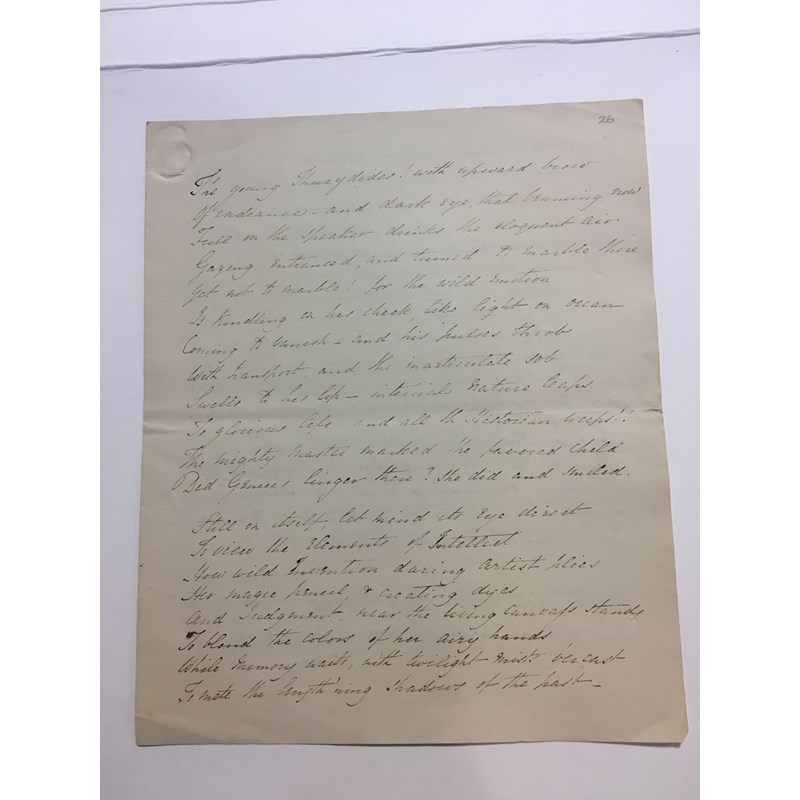 26
The young Thucydides! with upward brow
Of radiance - and dark eye, that beaming now
Full on the speaker drinks the eloquent air
Gazing entranced, and turned to marble there
Yet not to marble! for the wild emotion
Is kindling on his cheek, like light on ocean
Coming to vanish - and his pulses throb
With transport, and the inarticulate sob
Swells to his lip - internal nature leaps
To glorious life - and all th' Historian weeps!
The mighty master marked the favored child
Did Genius linger there? She did and smiled.
Still on itself, let mind its eye direct
To view the elements of Intellect
How wild Invention daring artist plies
Her magic pencil, & creating dyes
And Judgment, near the living canvass stands
To blend the colors of her airy hands
While memory waits, with twilight mists o'ercast
To mete the length'ning shadows of the past -